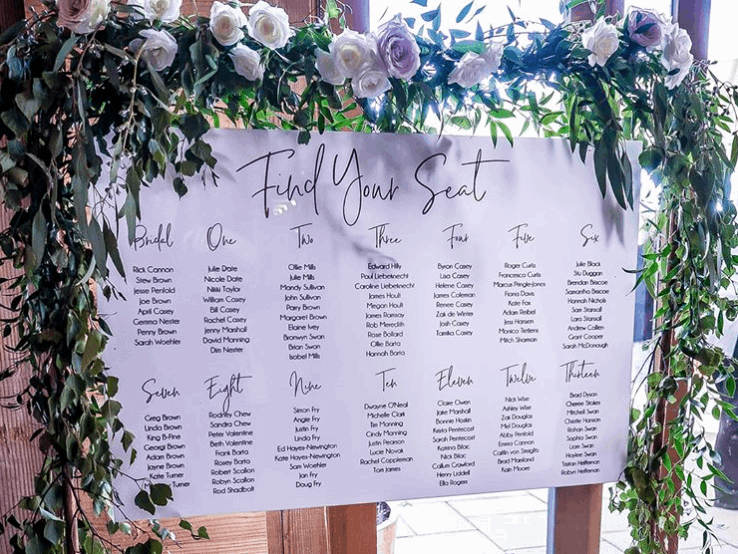 Find Your Seat
Bridal
Rick Cannon
Stew Brown
Jesse Penfold
Joe Brown
April Casey
Gemma Nester
Penny Brown
Sarah Woehler
One
Julie Date
Nicole Date
Nikki Taylor
William Casey
Bill Casey
Rachel Casey
Jenny Marshall
David Manning
Dim Nester
Two
Ollie Mills
Julie Mills
Mandy Sullivan
John Sullivan
Parry Brown
Margaret Brown
Elaine Ivey
Bronwyn Swan
Brian Swan
Isobel Mills
Three
Edward Hilly
Paul Liebeknecht
Caroline Liebeknecht
James Hoult
Megan Hoult
James Ramsay
Rob Meredith
Rose Bollard
Ollie Barta
Hannah Barta
Four
Byron Casey
Lisa Casey
Helene Casey
James Coleman
Renee Casey
Zak de Winter
Josh Casey
Tamika Casey
Five
Roger Curtis
Francesca Curtis
Marcus Pengle-Jones
Fiona Davis
Kate Fox
Adam Reibel
Jess Hansen
Monica Tettens
Mitch Sharman
Six
Julie Black
Stu Duggan
Brendan Briscoe
Samantha Briscoe
Hannah Nichols
Sam Stansall
Lara Stansall
Andrew Collen
Grant Cooper
Sarah McDonough
Seven
Greg Brown
Linda Brown
King B-Fine
Georgi Brown
Adam Brown
Jayne Brown
Kate Turner
Turner
Eight
Rodney Chew
Sandra Chew
Peter Valentine
Beth Valentine
Frank Barta
Rosey Barta
Robert Scallon
Robyn Scallon
Rod Shadbolt
Nine
Simon Fry
Angie Fry
Justin Fry
Linda Fry
Ed Hayes-Newington
Kate Hayes-Newington
Sam Woehler
Jan Fry
Doug Fry
Ten
Dwayne O'Neal
Michelle Clark
Tim Manning
Cindy Manning
Justin Pearson
Lucie Novak
Rachel Coppleman
Tom James
Eleven
Claire Owen
Jake Marshall
Bonnie Haskin
Krista Pentecost
Sarah Pentecost
Katrina Bilac
Nick Bilac
Callum Crawford
Henry Liddell
Ella Rogers
Twelve
Nick Wise
Ashley Wise
Zak Douglas
Mel Douglas
Abby Penfold
Emma Cannon
Caitlin von Stieglitz
Brad Mainland
Kain Moore
Thirteen
Brad Dyson
Cheree Stokes
Mitchell Swan
Christie Hanson
Rohan Swan
Sophia Swan
Liam Swan
Haylee Swan
Tristan Heffernan
Robyn Heffernan